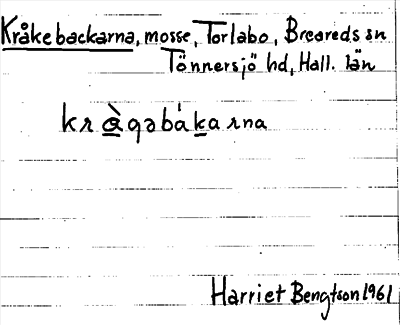 Kråkebackarna, mosse, Torlabo, Breareds sn
Tönnersjö hd, Hall. län
kràgəbákarna
Harriet Bengtson 1961